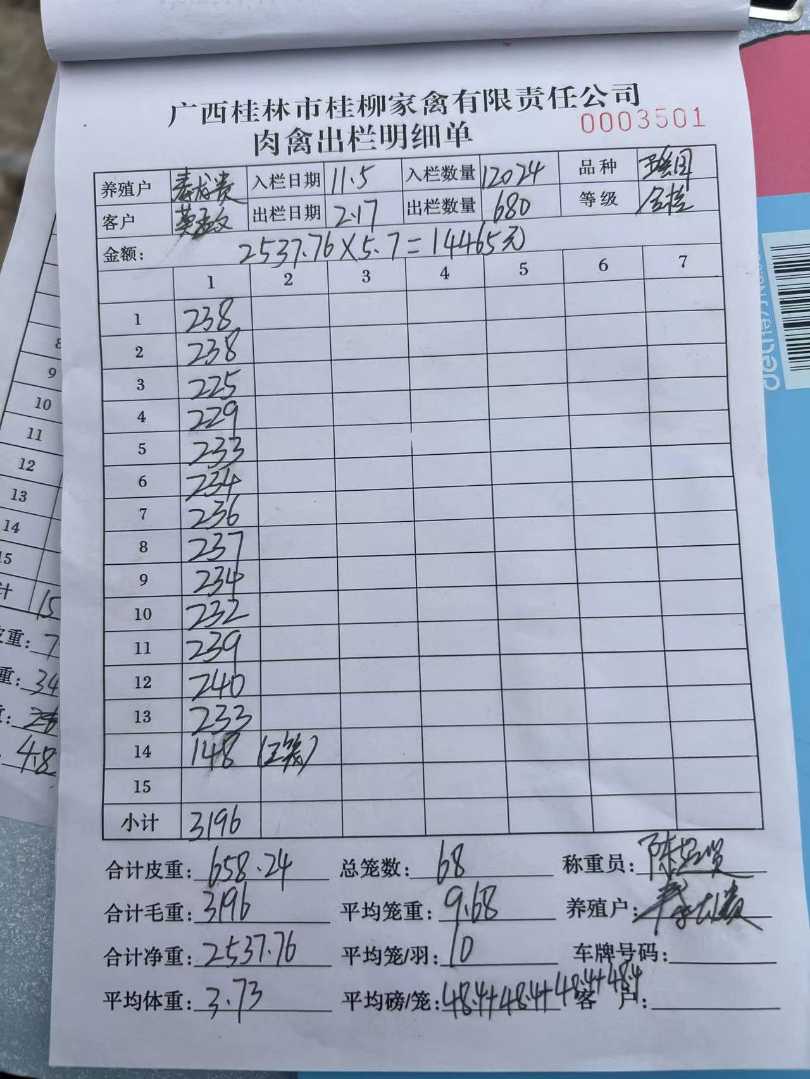 广西桂林市桂柳家禽有限责任公司
肉禽出栏明细单 0003501
养殖户 入栏日期 11.5 入栏数量 12024 品种
客户 出栏日期 2.17 出栏数量 680 等级
金额: 2537.76×5.7=14465元
1 2 3 4 5 6 7
1 238
2 238
3 225
4 229
5 233
6 234
7 236
8 237
9 234
10 232
11 239
12 240
13 233
14 148
15
小计 3196
合计皮重: 658.24 总笼数: 68 称重员:
合计毛重: 3196 平均笼重: 9.68 养殖户:
合计净重: 2537.76 平均笼/羽: 10 车牌号码:
平均体重: 3.73 平均磅/笼: 48.4+48.4+48.4+48.4 客户:
8
9
10
11
12
13
14
15
计 15
皮重: 7
重: 34
4.8